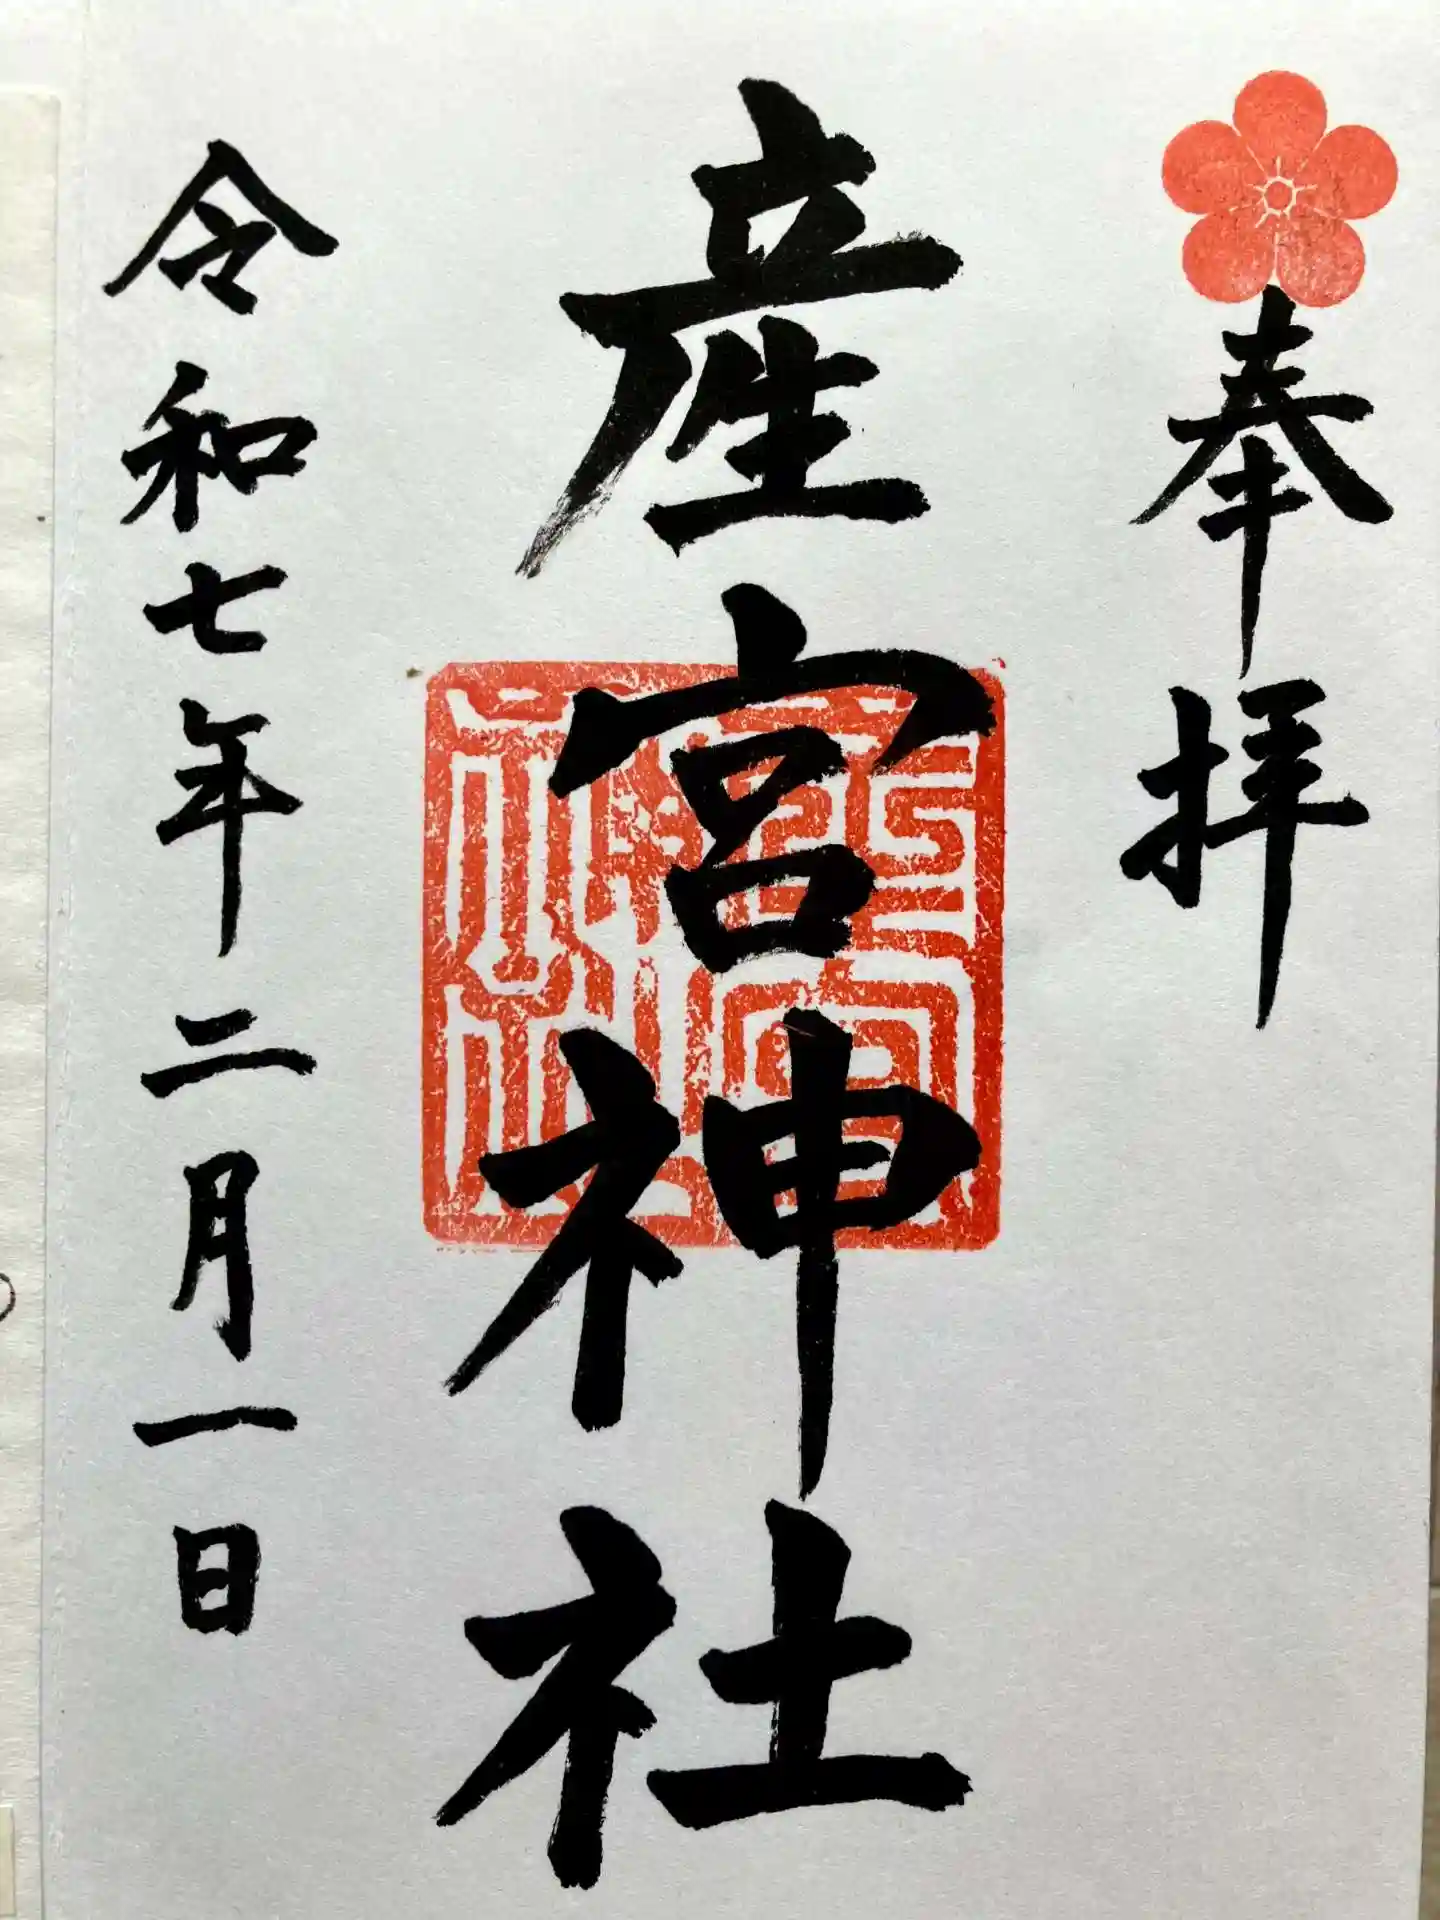 奉拝
産宮神社
令和七年二月一日